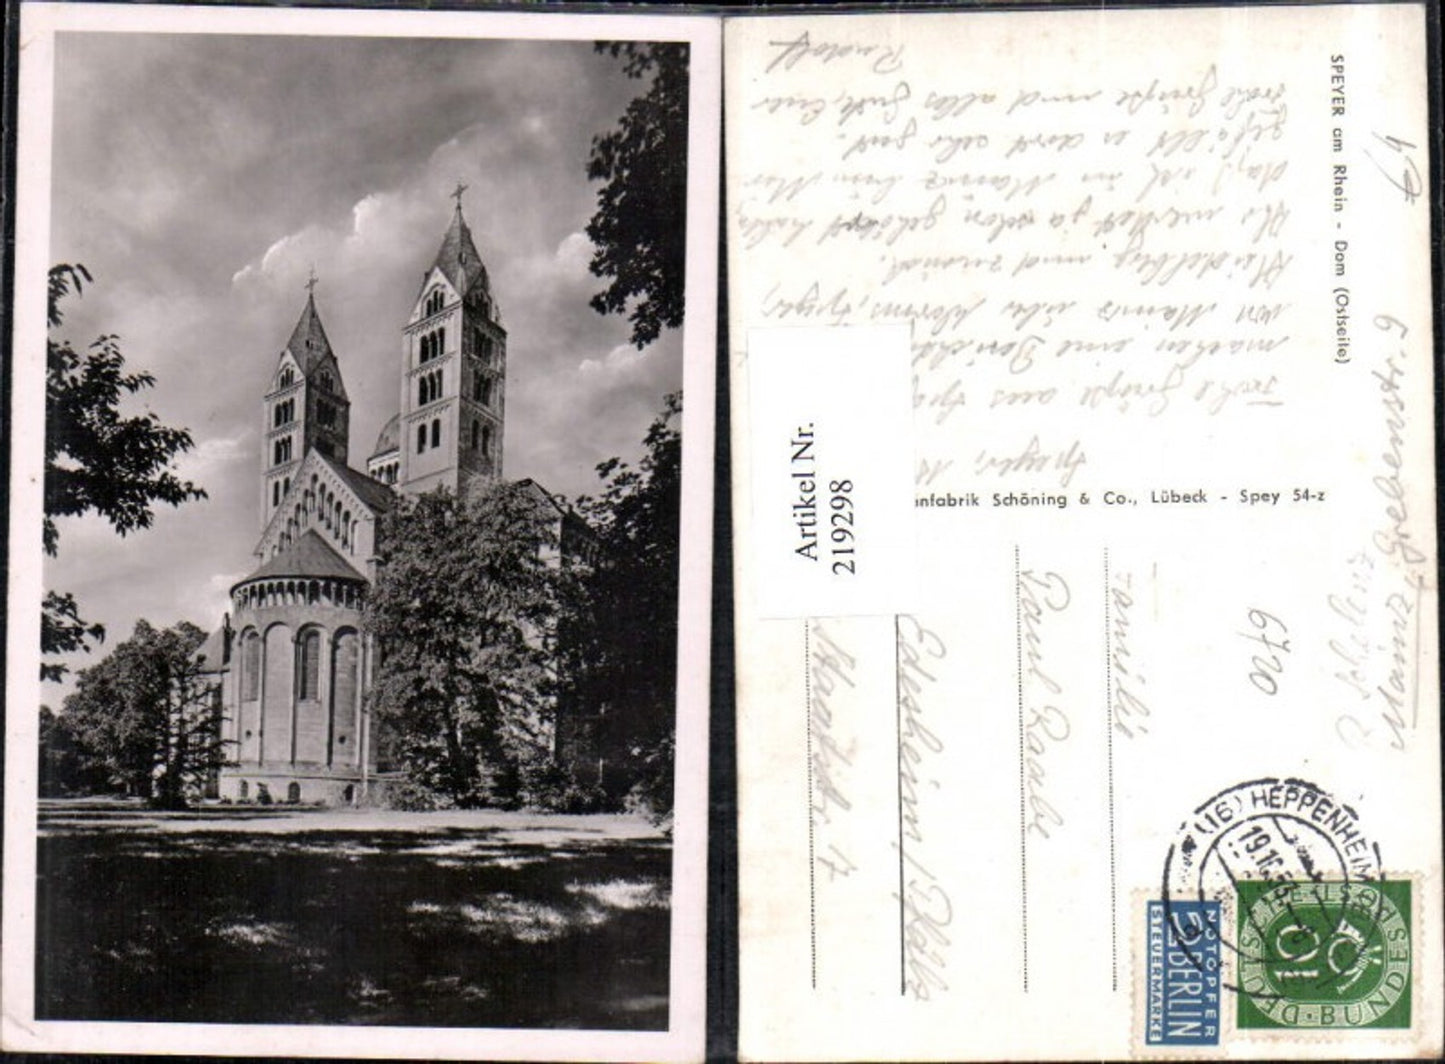 SPEYER am Rhein - Dom (Ostseite)
Speyer,
Frohe Grüße aus
machen eine
von Mainz über Worms, Speyer,
Heidelberg und zurück.
Ihr werdet ja schon gehört haben,
daß ich in Mainz bin. Mir
gefällt es dort sehr gut.
Frohe Grüße und alles Gute, Euer
Rudolf
nfabrik Schöning & Co., Lübeck - Spey 54-z
Artikel Nr.
219298
Mainz, Grebenstr. 9
6720
Familie
Paul Raabe
Edesheim / Pfalz
Staatsstr. 17
(16) HEPPENHEIM
NOTOPFER
2 BERLIN
STEUERMARKE
DEUTSCHE BUNDESPOST
10